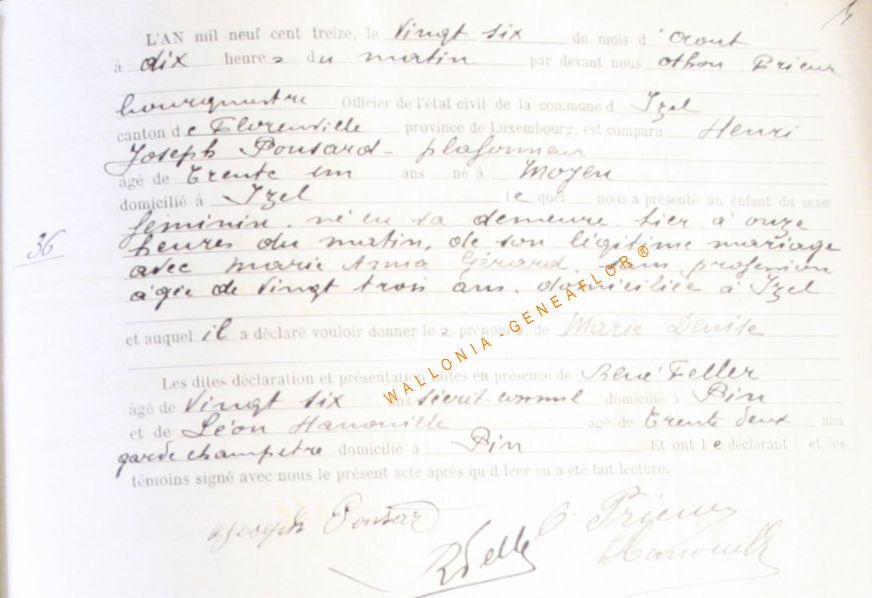 L'AN mil neuf cent treize, le vingt six du mois d'Aout
à dix heures du matin par devant nous Othon Prieur
bourgmestre Officier de l'état civil de la commune d Izel
canton de Florenville province de Luxembourg, est comparu Henri
Joseph Ponsard - plafonneur
âgé de trente un ans né à Moyen
domicilié à Izel lequel nous a présenté un enfant du sexe
féminin, né en sa demeure, hier à onze
36
heures du matin, de son légitime mariage
avec Marie Anna Gérard, sans profession
âgée de vingt trois ans, domiciliée à Izel
et auquel il a déclaré vouloir donner les prénoms de Marie Denise
Les dites déclaration et présentation faites en présence de René Feller
âgé de vingt six ans domicilié à Pin
et de Léon Hanouille âgé de trente deux ans
garde champêtre domicilié à Pin Et ont le déclarant et les
témoins signé avec nous le présent acte après qu'il leur en a été fait lecture.
Joseph Ponsard O. Prieur
RFeller LHanouille
WALLONIA-GENEAFLOR®